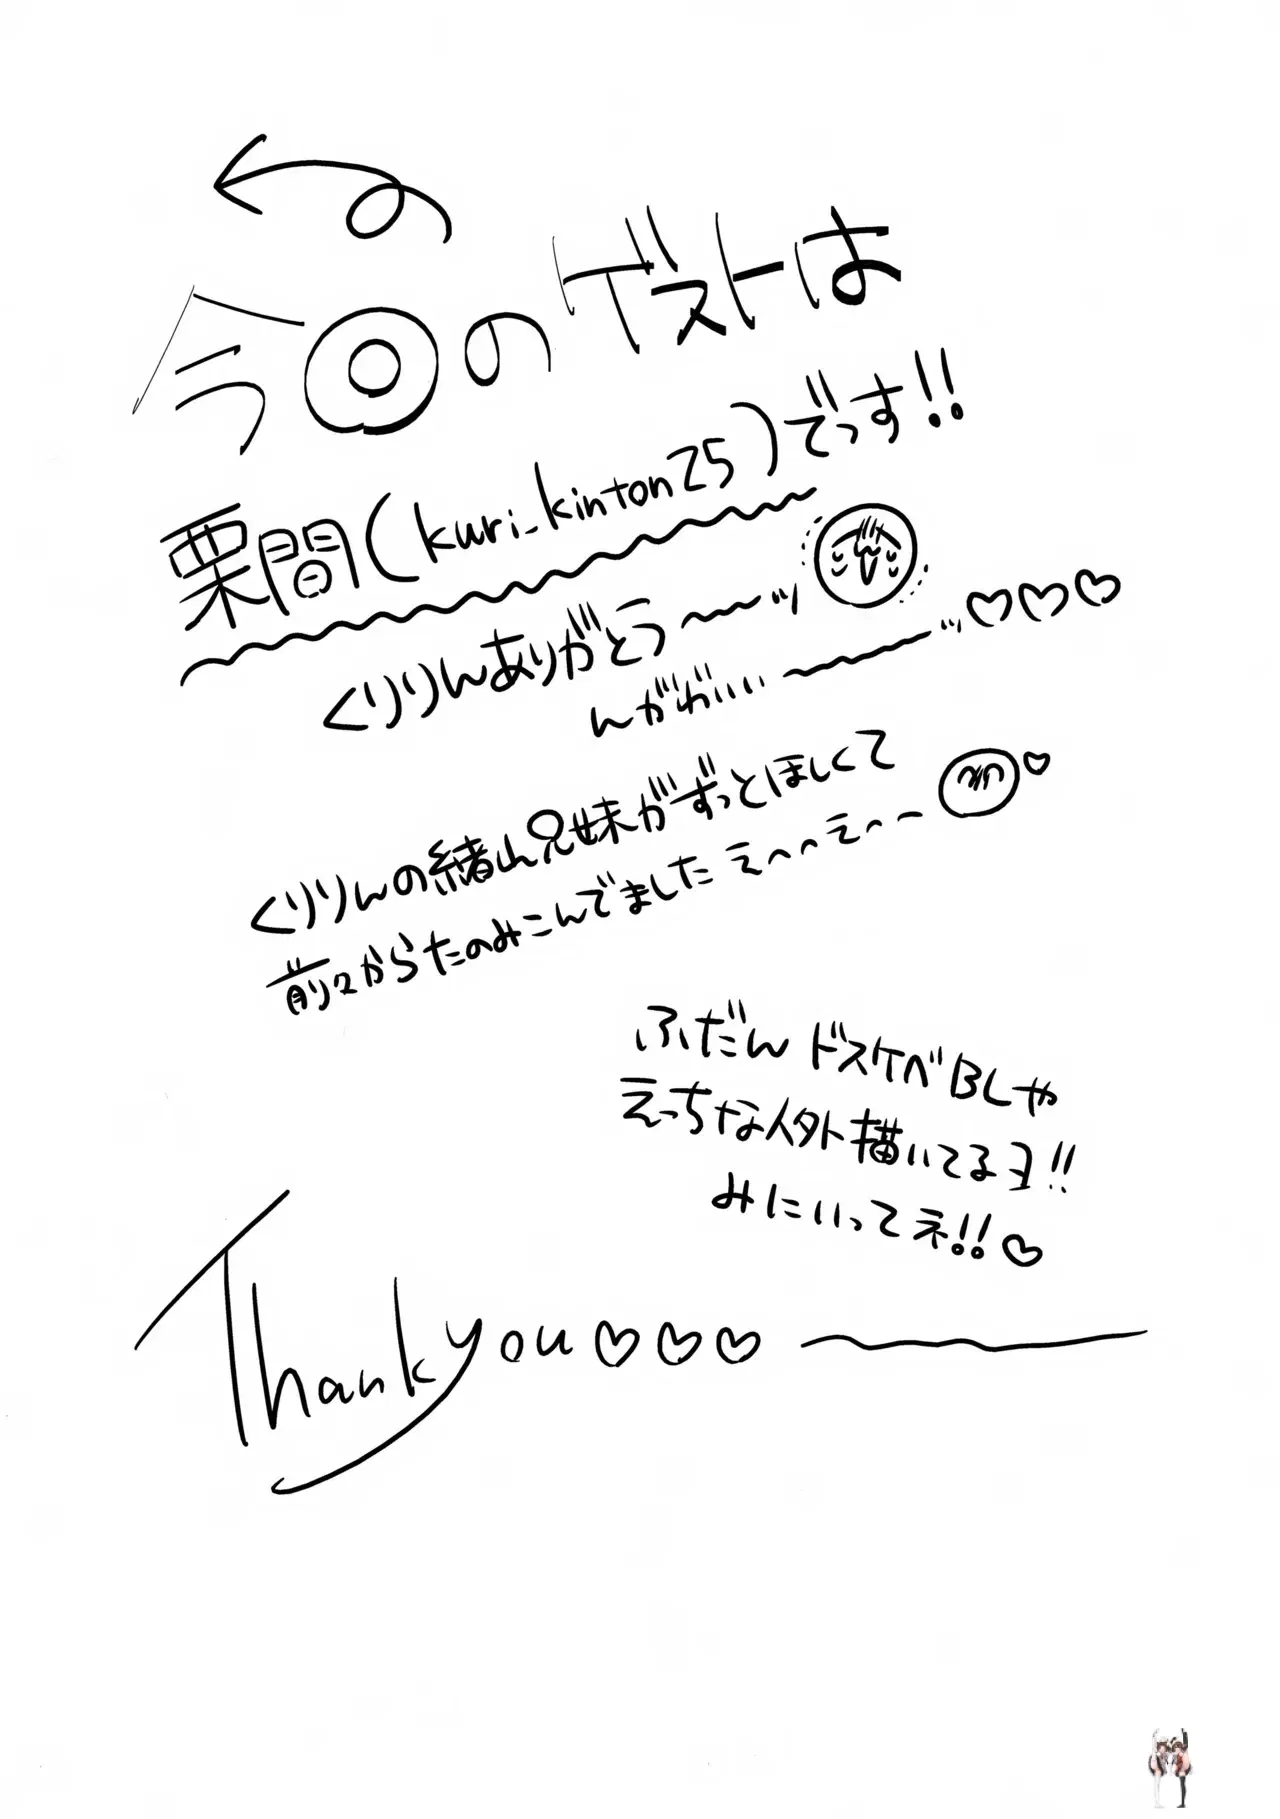 今回のゲストは
栗間(kuri_kinton25)でっす!!
くりりんありがとう〜〜ッ
んがわいい〜〜〜ッ♡♡♡
くりりんの緒山兄妹がずっとほしくて
前々からたのみこんでました えへへえへへ ♡
ふだん ドスケベBLや
えっちな人外描いてるヨ!!
みにいってネ!!♡
Thank you♡♡♡〜